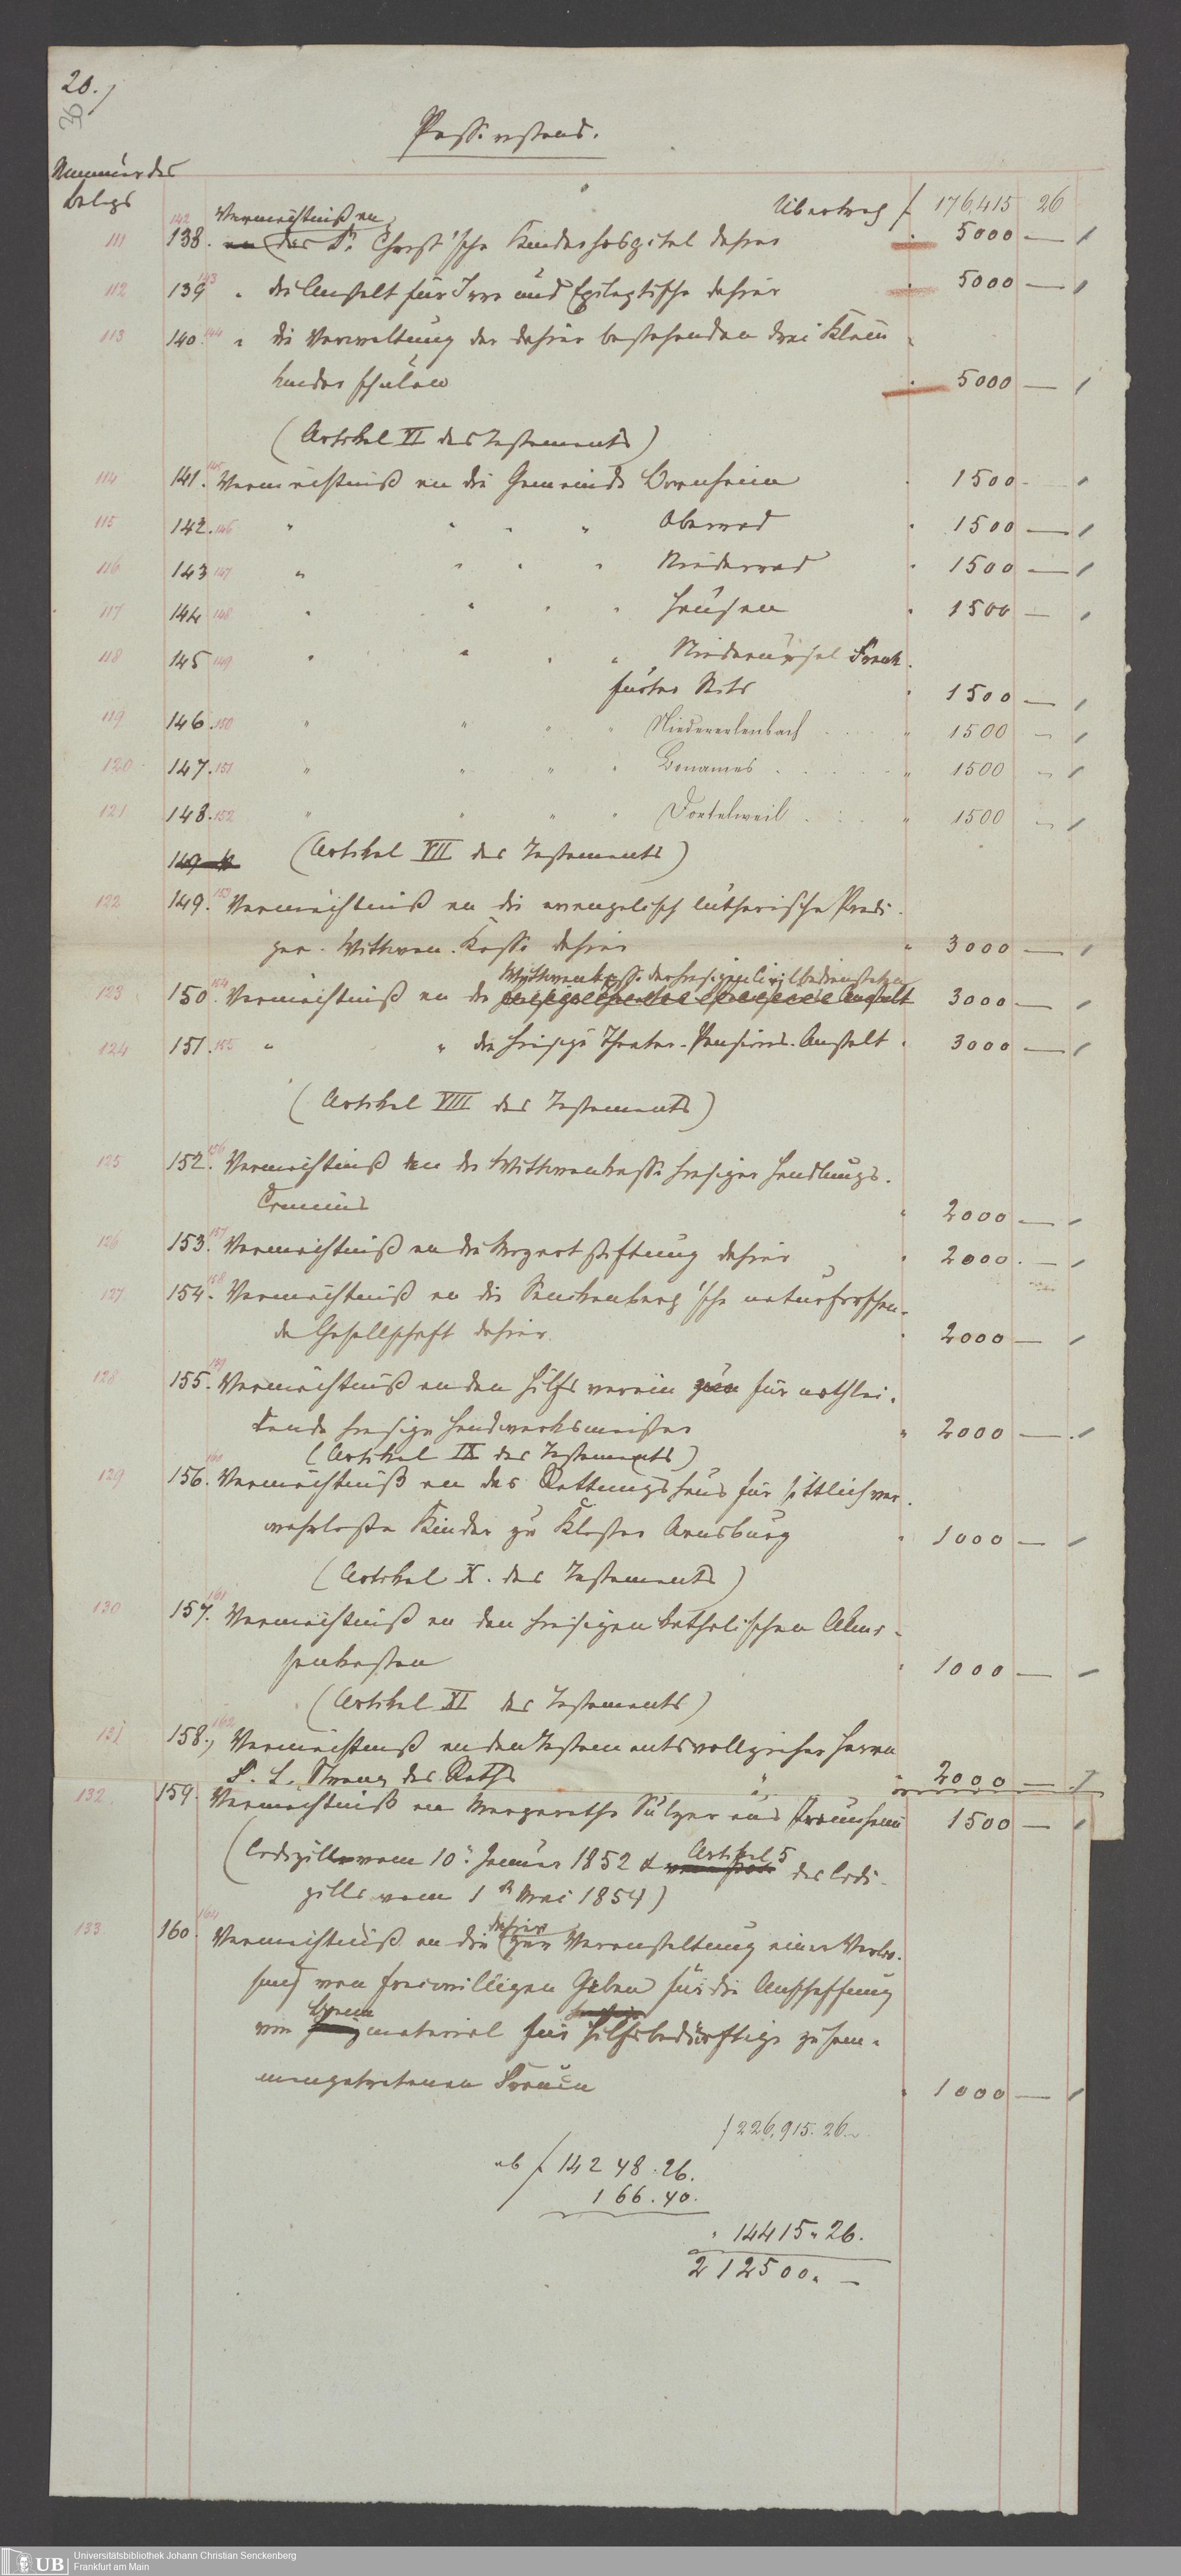 20.)
36
Passivstand.
Nummer des
Belegs
Übertrag f 176,415 26
Vermächtniß an
111 138. 142 an das Dr. Christ'sche Kinderhospital dahier " 5000 —
112 139 143 " die Anstalt für Irre und Epileptische dahier " 5000 —
113 140. 144 " die Verwaltung der dahier bestehenden drei Klein
kinderschulen " 5000 —
(Artikel VI des Testaments)
114 141. 145 Vermächtniß an die Gemeinde Bornheim " 1500 -
115 142. 146 " " " " Oberrad " 1500 —
116 143 147 " " " " Niederrad " 1500 —
117 144 148 " " " " Hausen " 1500 —
118 145 149 " " " " Niederursel Frank-
furter Seits " 1500 —
119 146. 150 " " " " Niedererlenbach . . . . " 1500 —
120 147. 151 " " " " Bonames . . . . . " 1500 —
121 148. 152 " " " " Dortelweil . . . . " 1500 —
149
(Artikel VII des Testaments)
122 149. 153 Vermächtniß an die evangelisch lutherische Predi-
ger-Wittwen-Kasse dahier " 3000 —
Wittwenkasse der hiesigen Civilbediensteten
123 150. 154 Vermächtniß an die Anstalt 3000 —
124 151. 155 " " die hiesige Theater-Pensions-Anstalt " 3000 —
(Artikel VIII des Testaments)
125 152. 156 Vermächtniß an die Wittwenkasse hiesiger Handlungs-
Commis " 2000 —
126 153. 157 Vermächtniß an die Mozartstiftung dahier " 2000. —
127 154. 158 Vermächtniß an die Senckenberg'sche naturforschen-
de Gesellschaft dahier. " 2000 —
128 155. 159 Vermächtniß an den Hilfsverein für nothlei-
dende hiesige Handwerksmeister " 2000 —
(Artikel IX des Testaments)
129 156. 160 Vermächtniß an das Rettungshaus für sittlich ver-
wahrloste Kinder zu Kloster Arnsburg " 1000 —
(Artikel X. des Testaments)
130 157. 161 Vermächtniß an den hiesigen katholischen Almo-
senkasten " 1000 —
(Artikel XI des Testaments)
131 158., 162 Vermächtniß an den Testamentsvollzieher Herrn
des Raths " 2000 —
132. 159. Vermächtniß an Margaretha Sulzer aus 1500 —
(Codizill vom 10. Januar 1852 & Artikel 5 des Codi-
zills vom 1n Mai 1854)
dahier
133 160. 164 Vermächtniß an die zur Veranstaltung einer Verloo-
sung von freiwilligen Gaben für die Anschaffung
Brenn
von material für Hilfsbedürftige zusam-
mengetretenen Frauen " 1000 —
f 226,915. 26.
ab f 14248. 26.
166. 40.
" 14415 " 26.
212500. —
UB Universitätsbibliothek Johann Christian Senckenberg
Frankfurt am Main